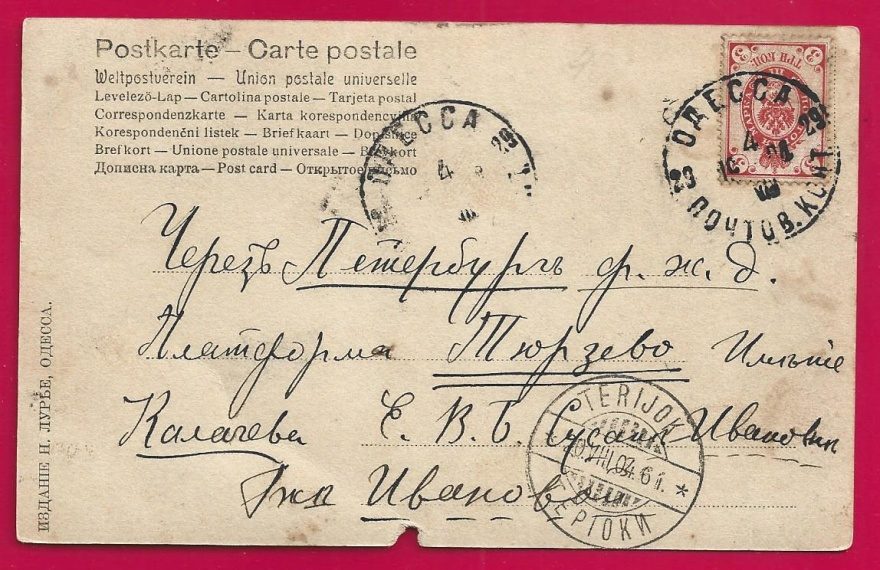 Postkarte — Carte postale
Weltpostverein — Union postale universelle
Levelező-Lap — Cartolina postale — Tarjeta postal
Correspondenzkarte — Karta korespondencyjna
Korespondenční listek — Briefkaart — Dopisnice
Brefkort — Unione postale universale — Brevkort
Дописна карта — Post card — Открытое письмо
ОДЕССА 29
4
ОДЕССА
29 29
4
ПОЧТОВ. КОНТ
3 3
ТРИ КОП
Черезъ Петербургъ ф. ж. д.
Платформа Тюрзево Имѣніе
Калачева Е. В. Б. Сусанѣ Ивановнѣ
Гжа Иванова
TERIJOKI
VIII.04. 61.
ТЕРІОКИ
ИЗДАНІЕ И. ЛУРЬЕ, ОДЕССА.